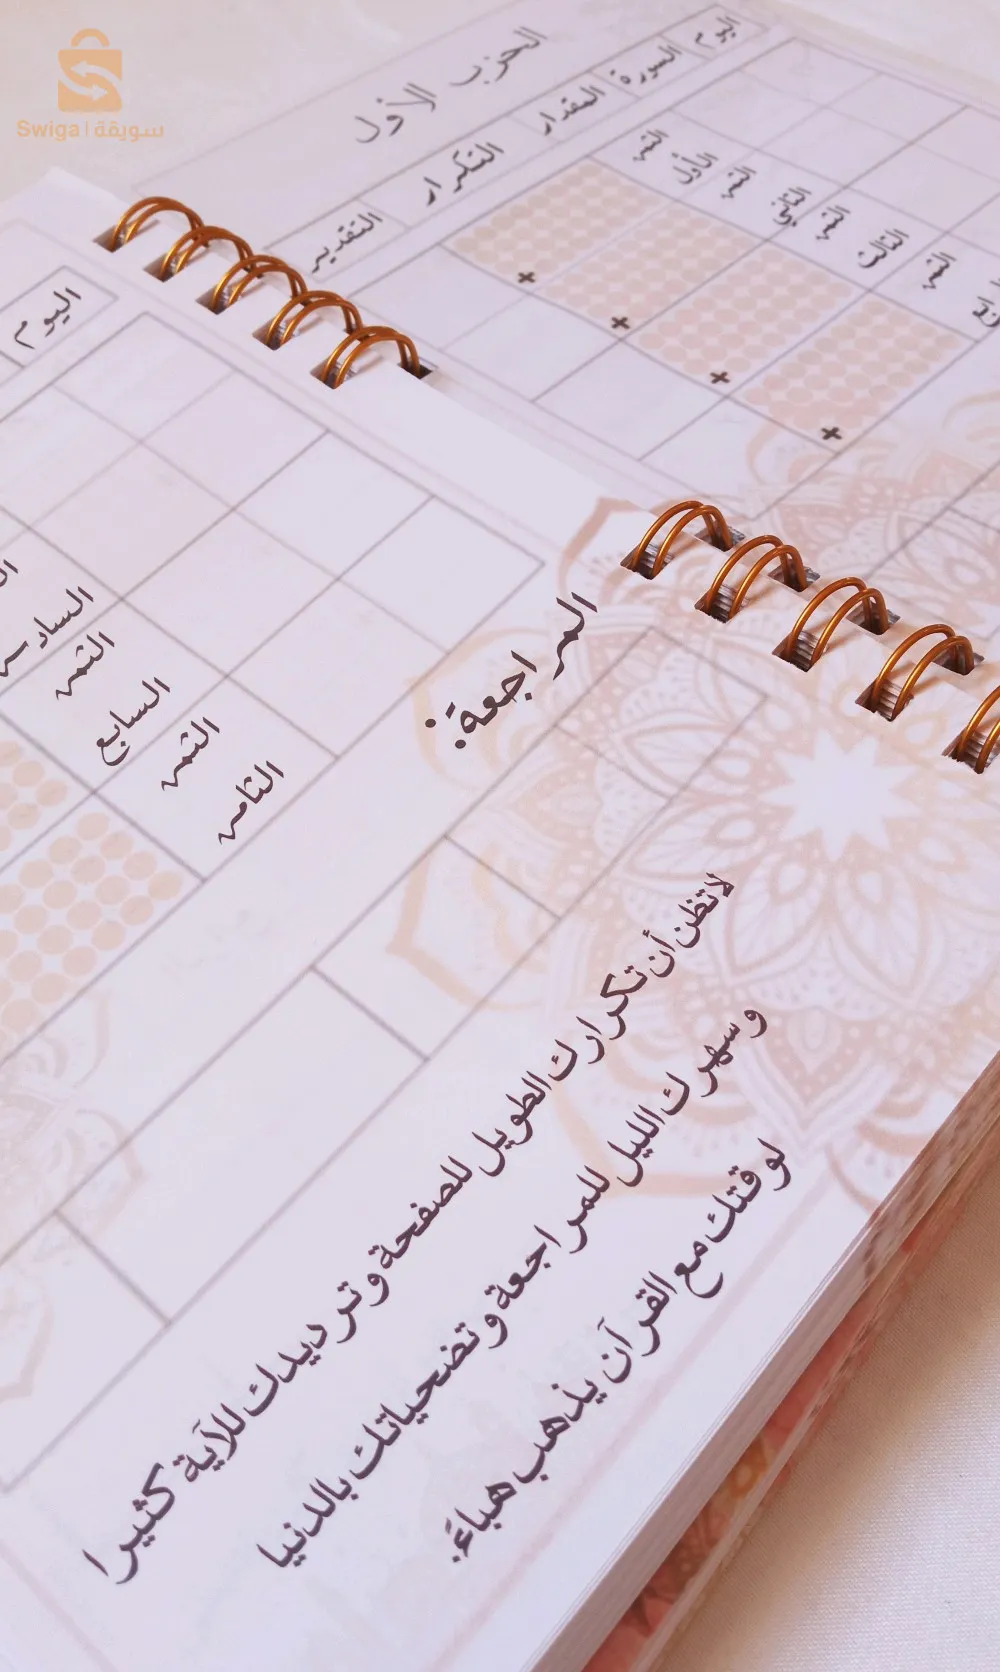 Swiga | سويقة
الحزب الأول
اليوم
السورة
المقدار
التكرار
التقدير
الثمن الأول
الثمن الثاني
الثمن الثالث
الثمن
+
+
+
+
اليوم
السادس
الثمن السابع
الثمن الثامن
المراجعة:
لا تظن أن تكرارك الطويل للصفحة وترديدك للآية كثيرا
وسهرك الليل للمراجعة وتضحياتك بالدنيا
لوقتك مع القرآن يذهب هباءً.